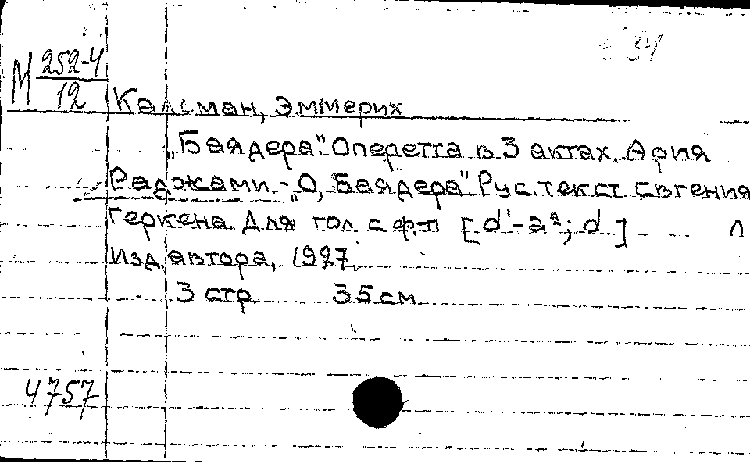 М 252-4
12
Калсман, Эммерих
„Баядера". Оперетта в 3 актах. Ария
Раджами - „О, Баядера" Рус. текст Евгения
Геркена. Для гол. с ф-п [d'-a²; d]
Л
Изд. автора, 1927.
3 стр 35 см
4757